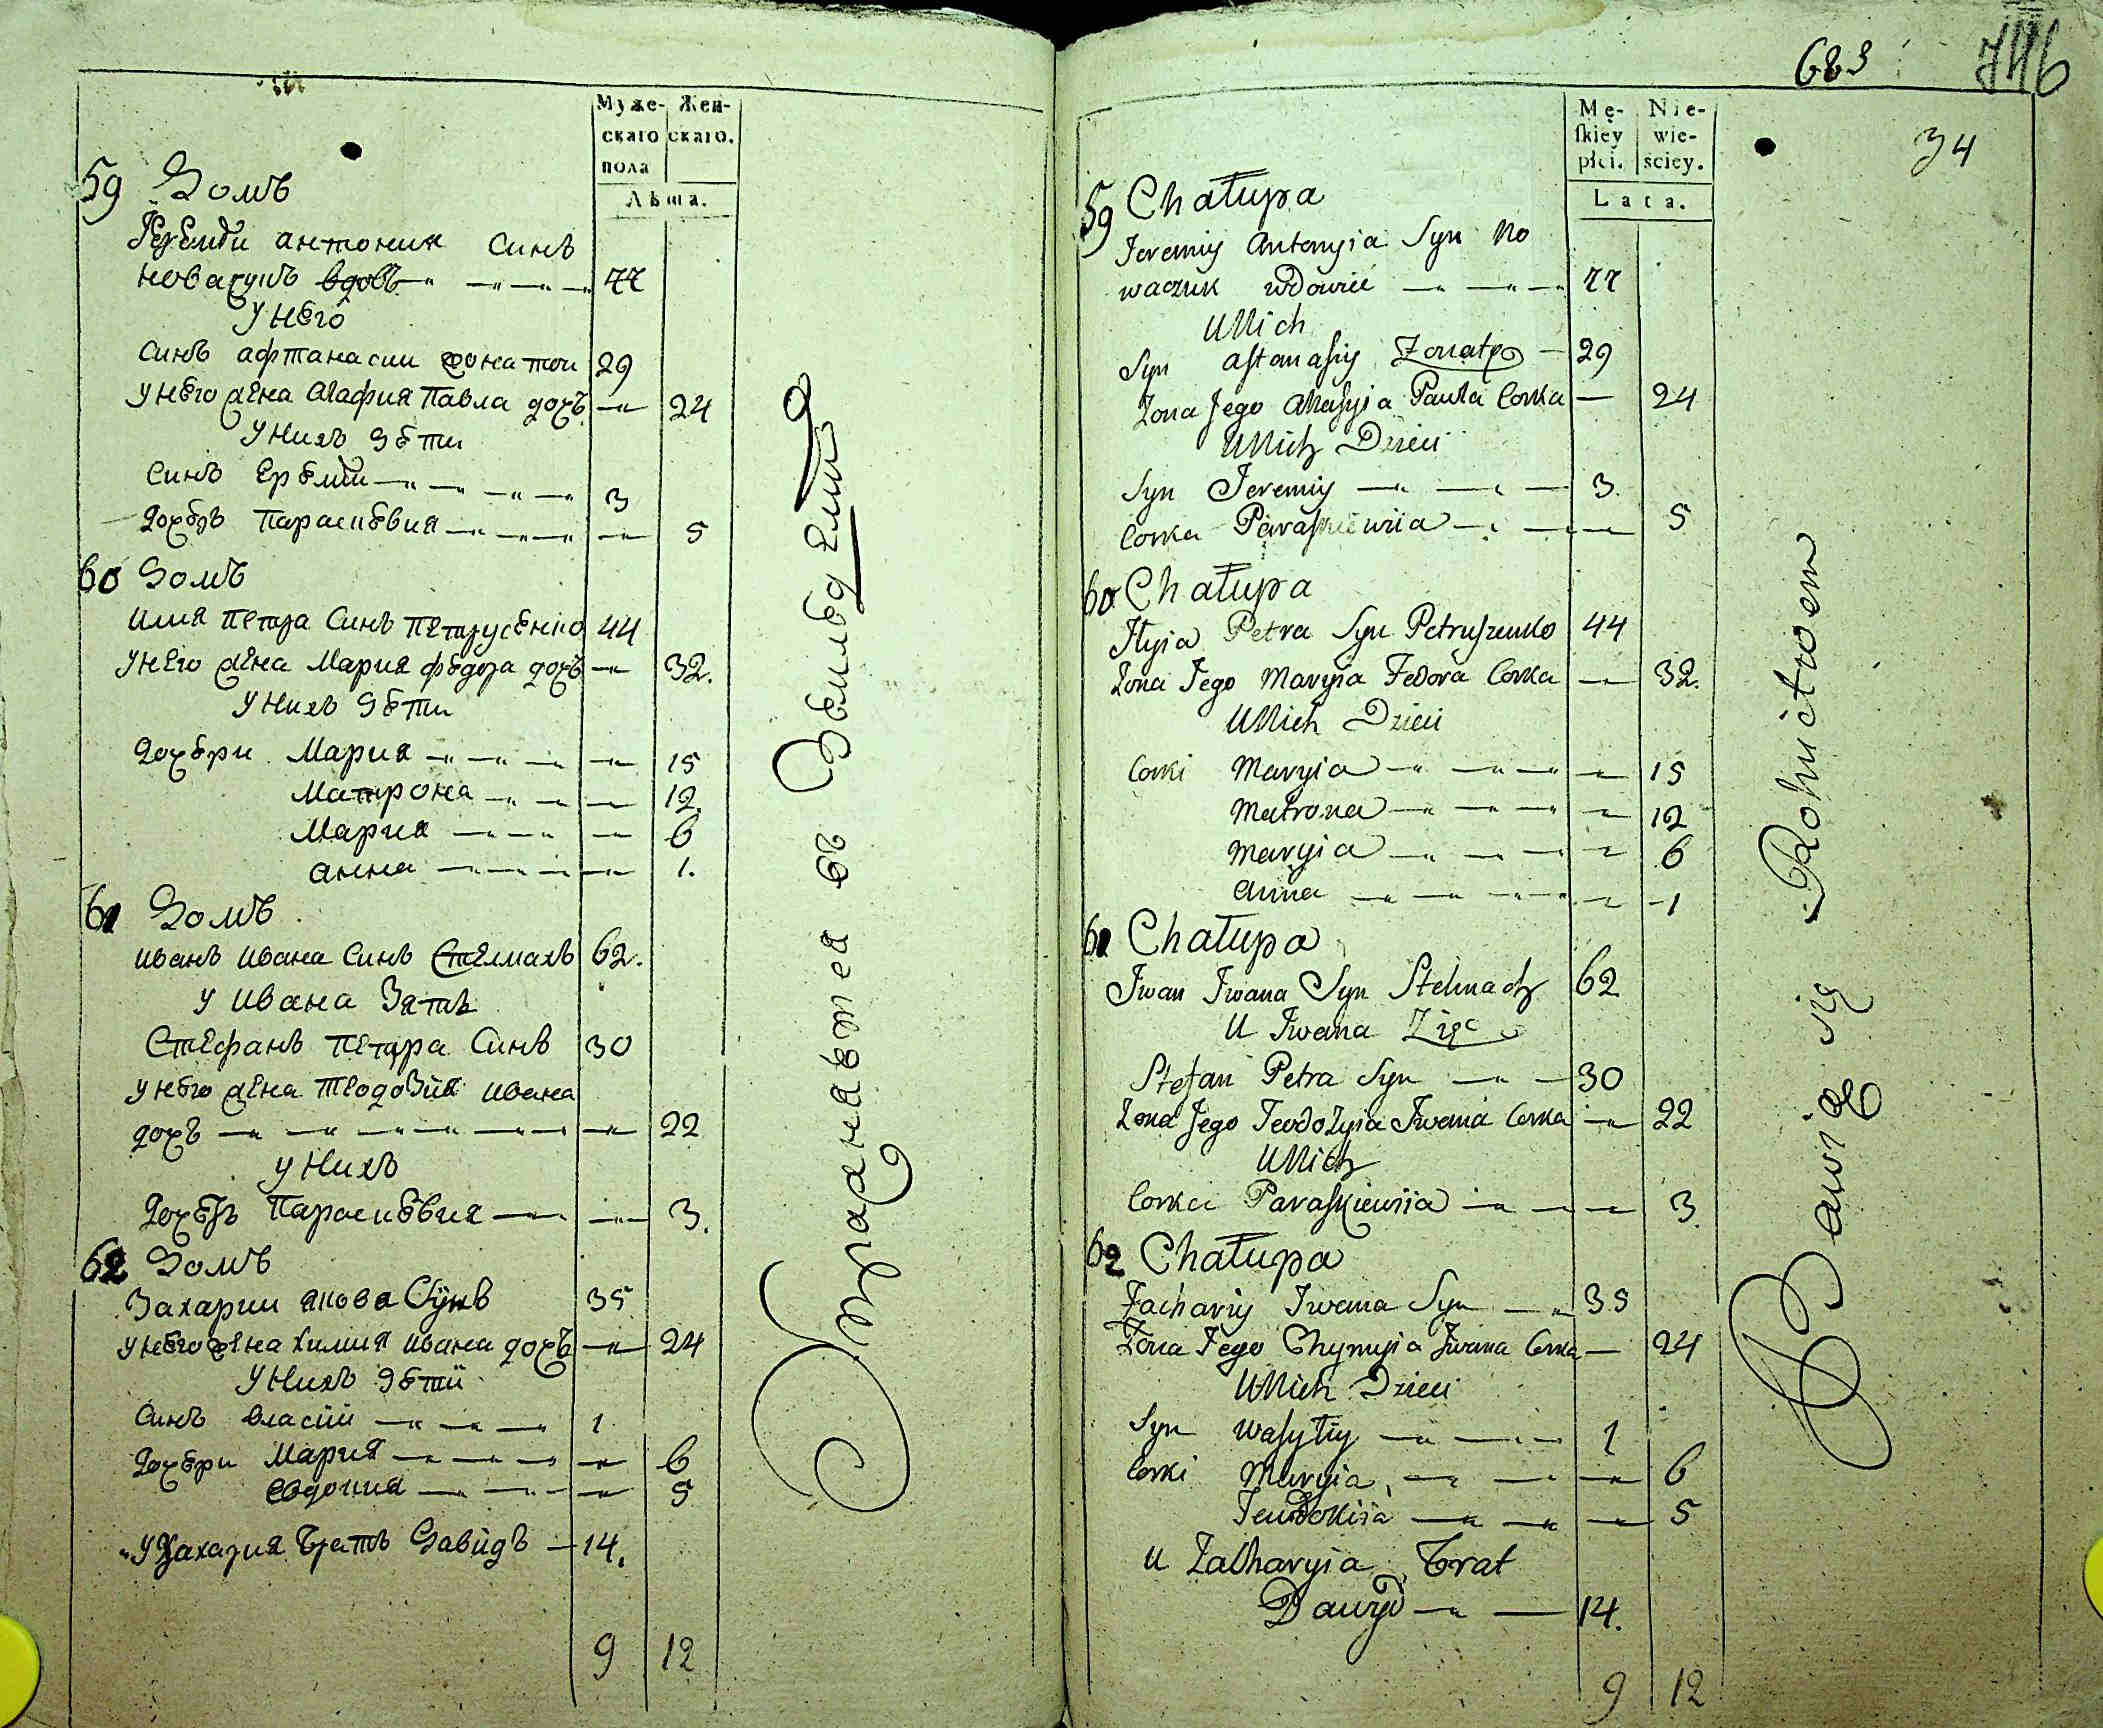 Муже-
скаго
пола
Жен-
скаго.
Лѣта.
59 Домъ
Иеремїи антония Синъ
новачукъ вдовъ 77
У него
Синъ афтанасии жонатои 29
У него жена Агафия Павла дочъ 24
У нихъ дѣти
Синъ Еремїи 3
Дочеръ Параскевия 5
60 Домъ
Илия Петра Синъ Петрусенко 44
У него жена Мария Федора дочъ 32.
У нихъ дѣти
Дочери Мария 15
Матрона 12.
Мария 6
анна 1.
61 Домъ
иванъ ивана Синъ Стелмахъ 62.
У ивана Зять
Стефанъ Петра Синъ 30
У него жена Теодозия ивана
дочъ 22
У нихъ
Дочеръ Параскевия 3.
62 Домъ
Захарии якова Сынъ 35
У него жена химия ивана дочъ 24
У нихъ дѣти
Синъ власїи 1
Дочери Мария 6
евдокия 5
У Захария Братъ Давидъ 14.
9 12
въ
683
746
34
Mę-
skiey
płci.
Nie-
wie-
ściey.
Lata.
59 Chałupa
Jeremiy Antonyia Syn No
waczuk wdowiec 77
U Nich
Syn Aftanasiy Żonaty 29
Żona Jego Ahafyia Pawła Corka 24
U Nich Dzieci
Syn Jeremiy 3.
Corka Paraskiewiia 5
60 Chałupa
Ilyia Petra Syn Petruszenko 44
Żona Jego Maryia Fedora Corka 32.
U Nich Dzieci
Corki Maryia 15
Matrona 12
Maryia 6
Anna 1
61 Chałupa
Iwan Iwana Syn Stelmach 62
U Iwana Zięc
Stefan Petra Syn 30
Żona Jego Teodozyia Iwana Corka 22
U Nich
Corka Paraskiewiia 3.
62 Chałupa
Zachariy Iwana Syn 35
Żona Jego Chymyia Iwana Corka 24
U Nich Dzieci
Syn Wasyliy 1
Corki Maryia 6
Jewdokiia 5
U Zacharyia Brat
Dawyd 14.
9 12
Bawią się